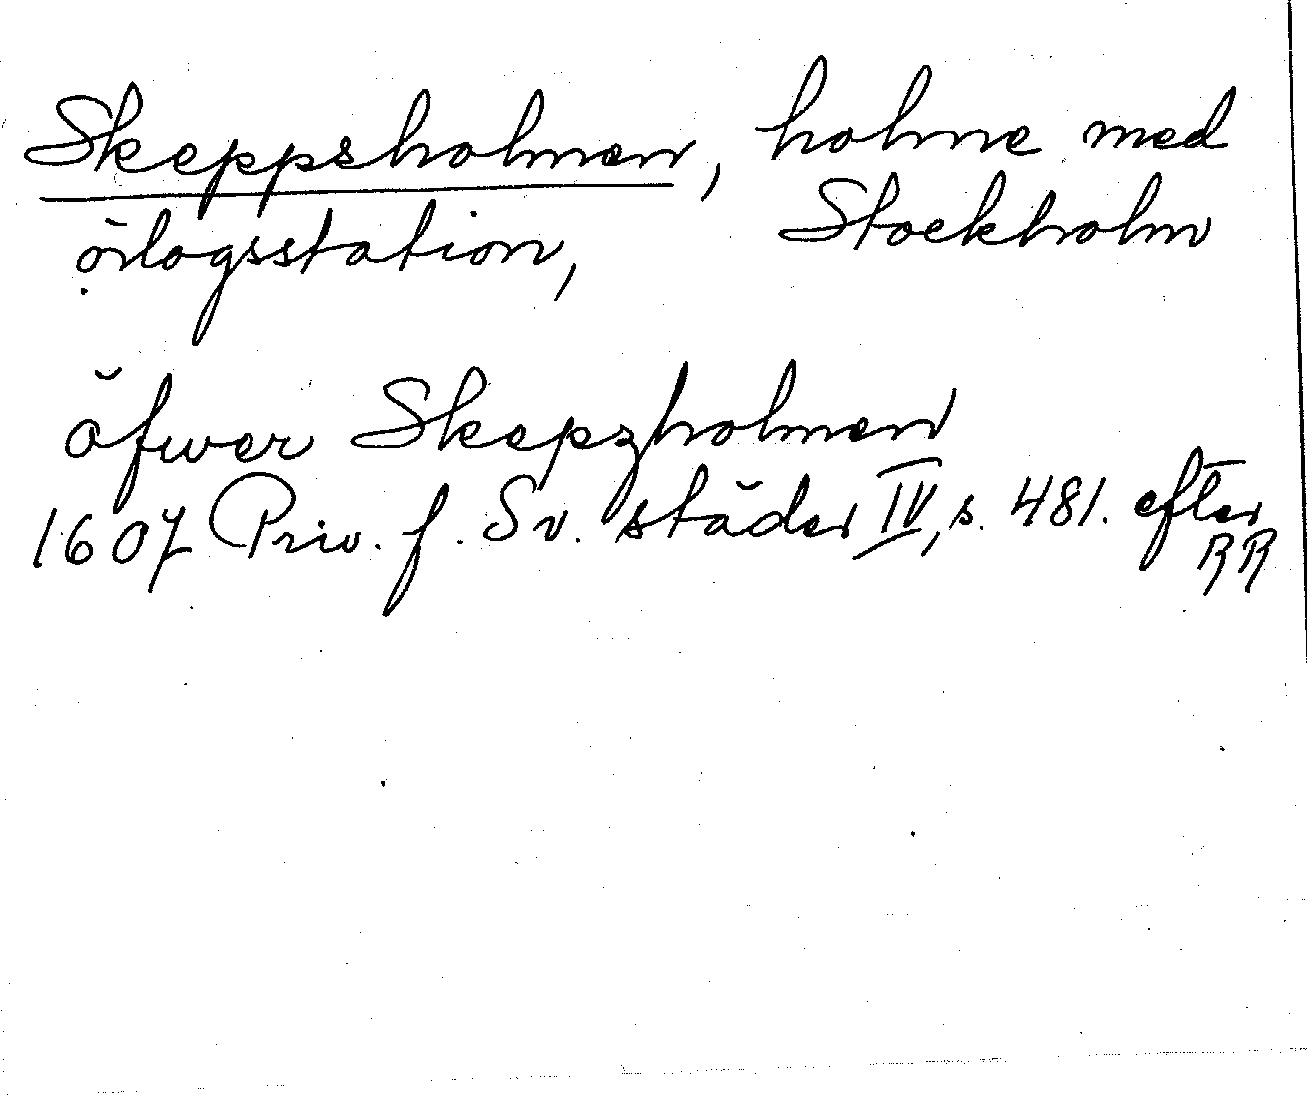 Skeppsholmen, holme med
örlogsstation, Stockholm
öfwer Skepzholmen
1607 Priv. f. Sv. städer IV, s. 481. efter
RR